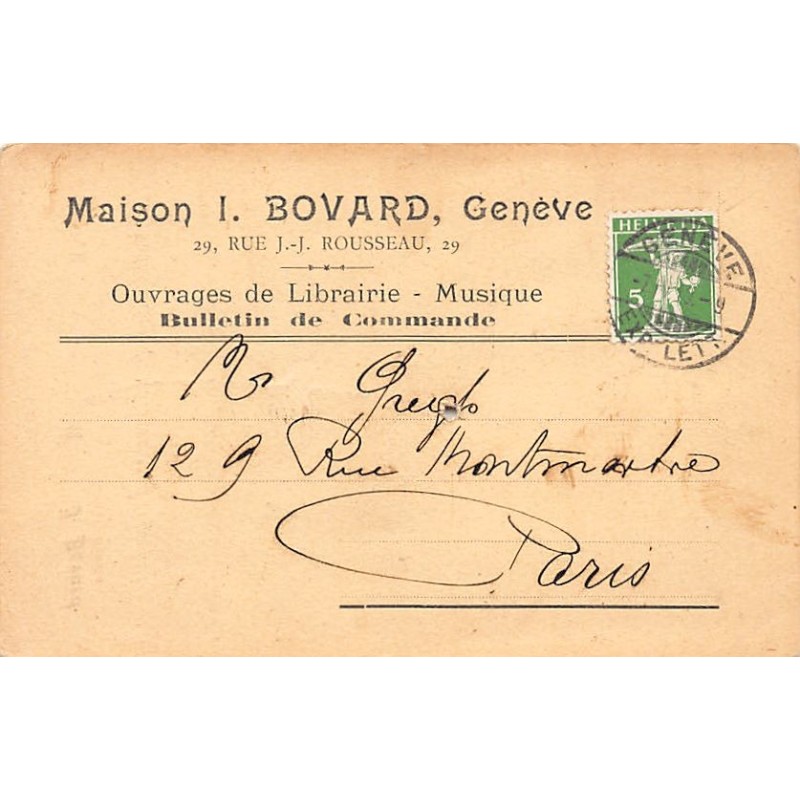 Maison I. BOVARD, Genève
29, RUE J.-J. ROUSSEAU, 29
Ouvrages de Librairie - Musique
Bulletin de Commande
HELVETIA
5
GENÈVE
EXP. LETT.
Mr
129 Rue Montmartre
Paris